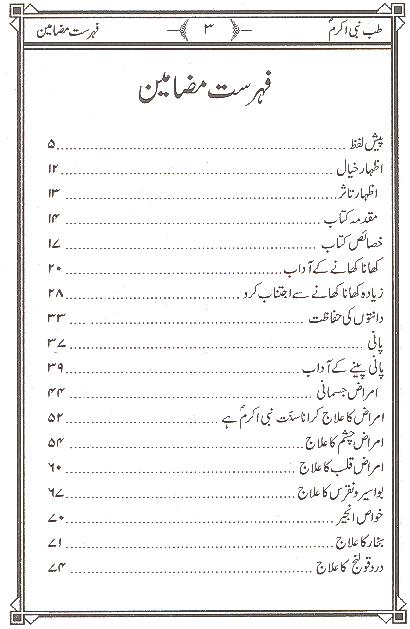 طب نبی اکرمؐ ۳ فہرست مضامین
فہرست مضامین
پیش لفظ ۵
اظہار خیال ۱۲
اظہار تاثر ۱۳
مقدمہ کتاب ۱۴
خصائص کتاب ۱۷
کھانا کھانے کے آداب ۲۰
زیادہ کھانا کھانے سے اجتناب کرو ۲۸
دانتوں کی حفاظت ۳۳
پانی ۳۷
پانی پینے کے آداب ۳۹
امراض جسمانی ۴۴
امراض کا علاج کرانا سنّت نبی اکرمؐ ہے ۵۲
امراض چشم کا علاج ۵۴
امراض قلب کا علاج ۶۰
بواسیر و نقرس کا علاج ۶۷
خواص انجیر ۷۰
بخار کا علاج ۷۱
درد قولنج کا علاج ۷۴